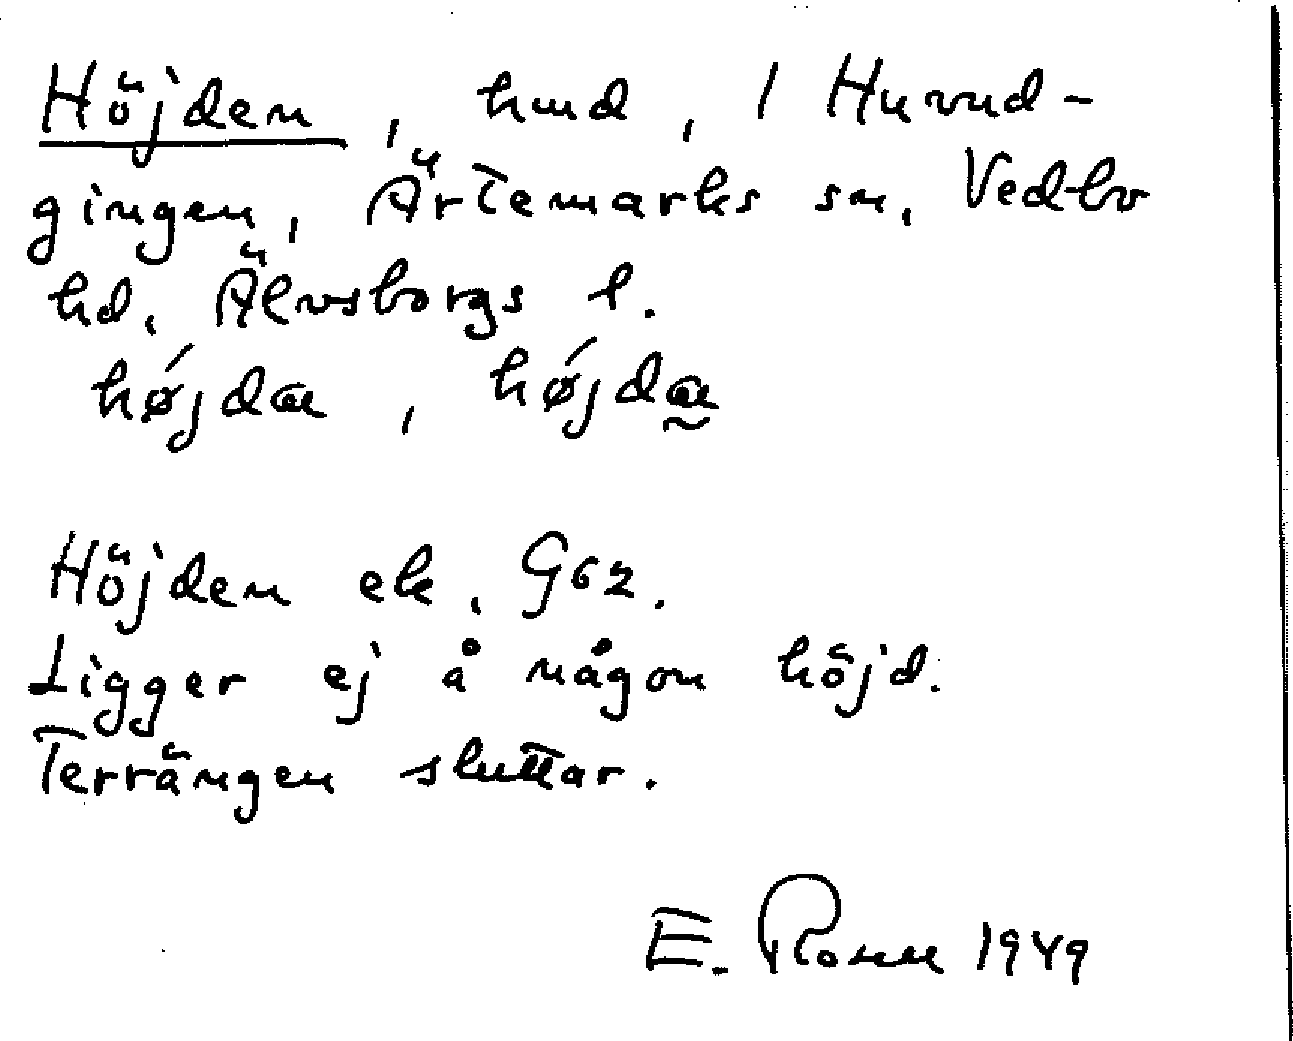 Höjden, hmd, / Huvud-
gingen, Ärtemarks sn, Vedbo
hd, Älvsborgs l.
hǿjdæ, hǿjdæ̰
Höjden ek, G62.
Ligger ej å någon höjd.
Terrängen sluttar.
E. Rosell 1949